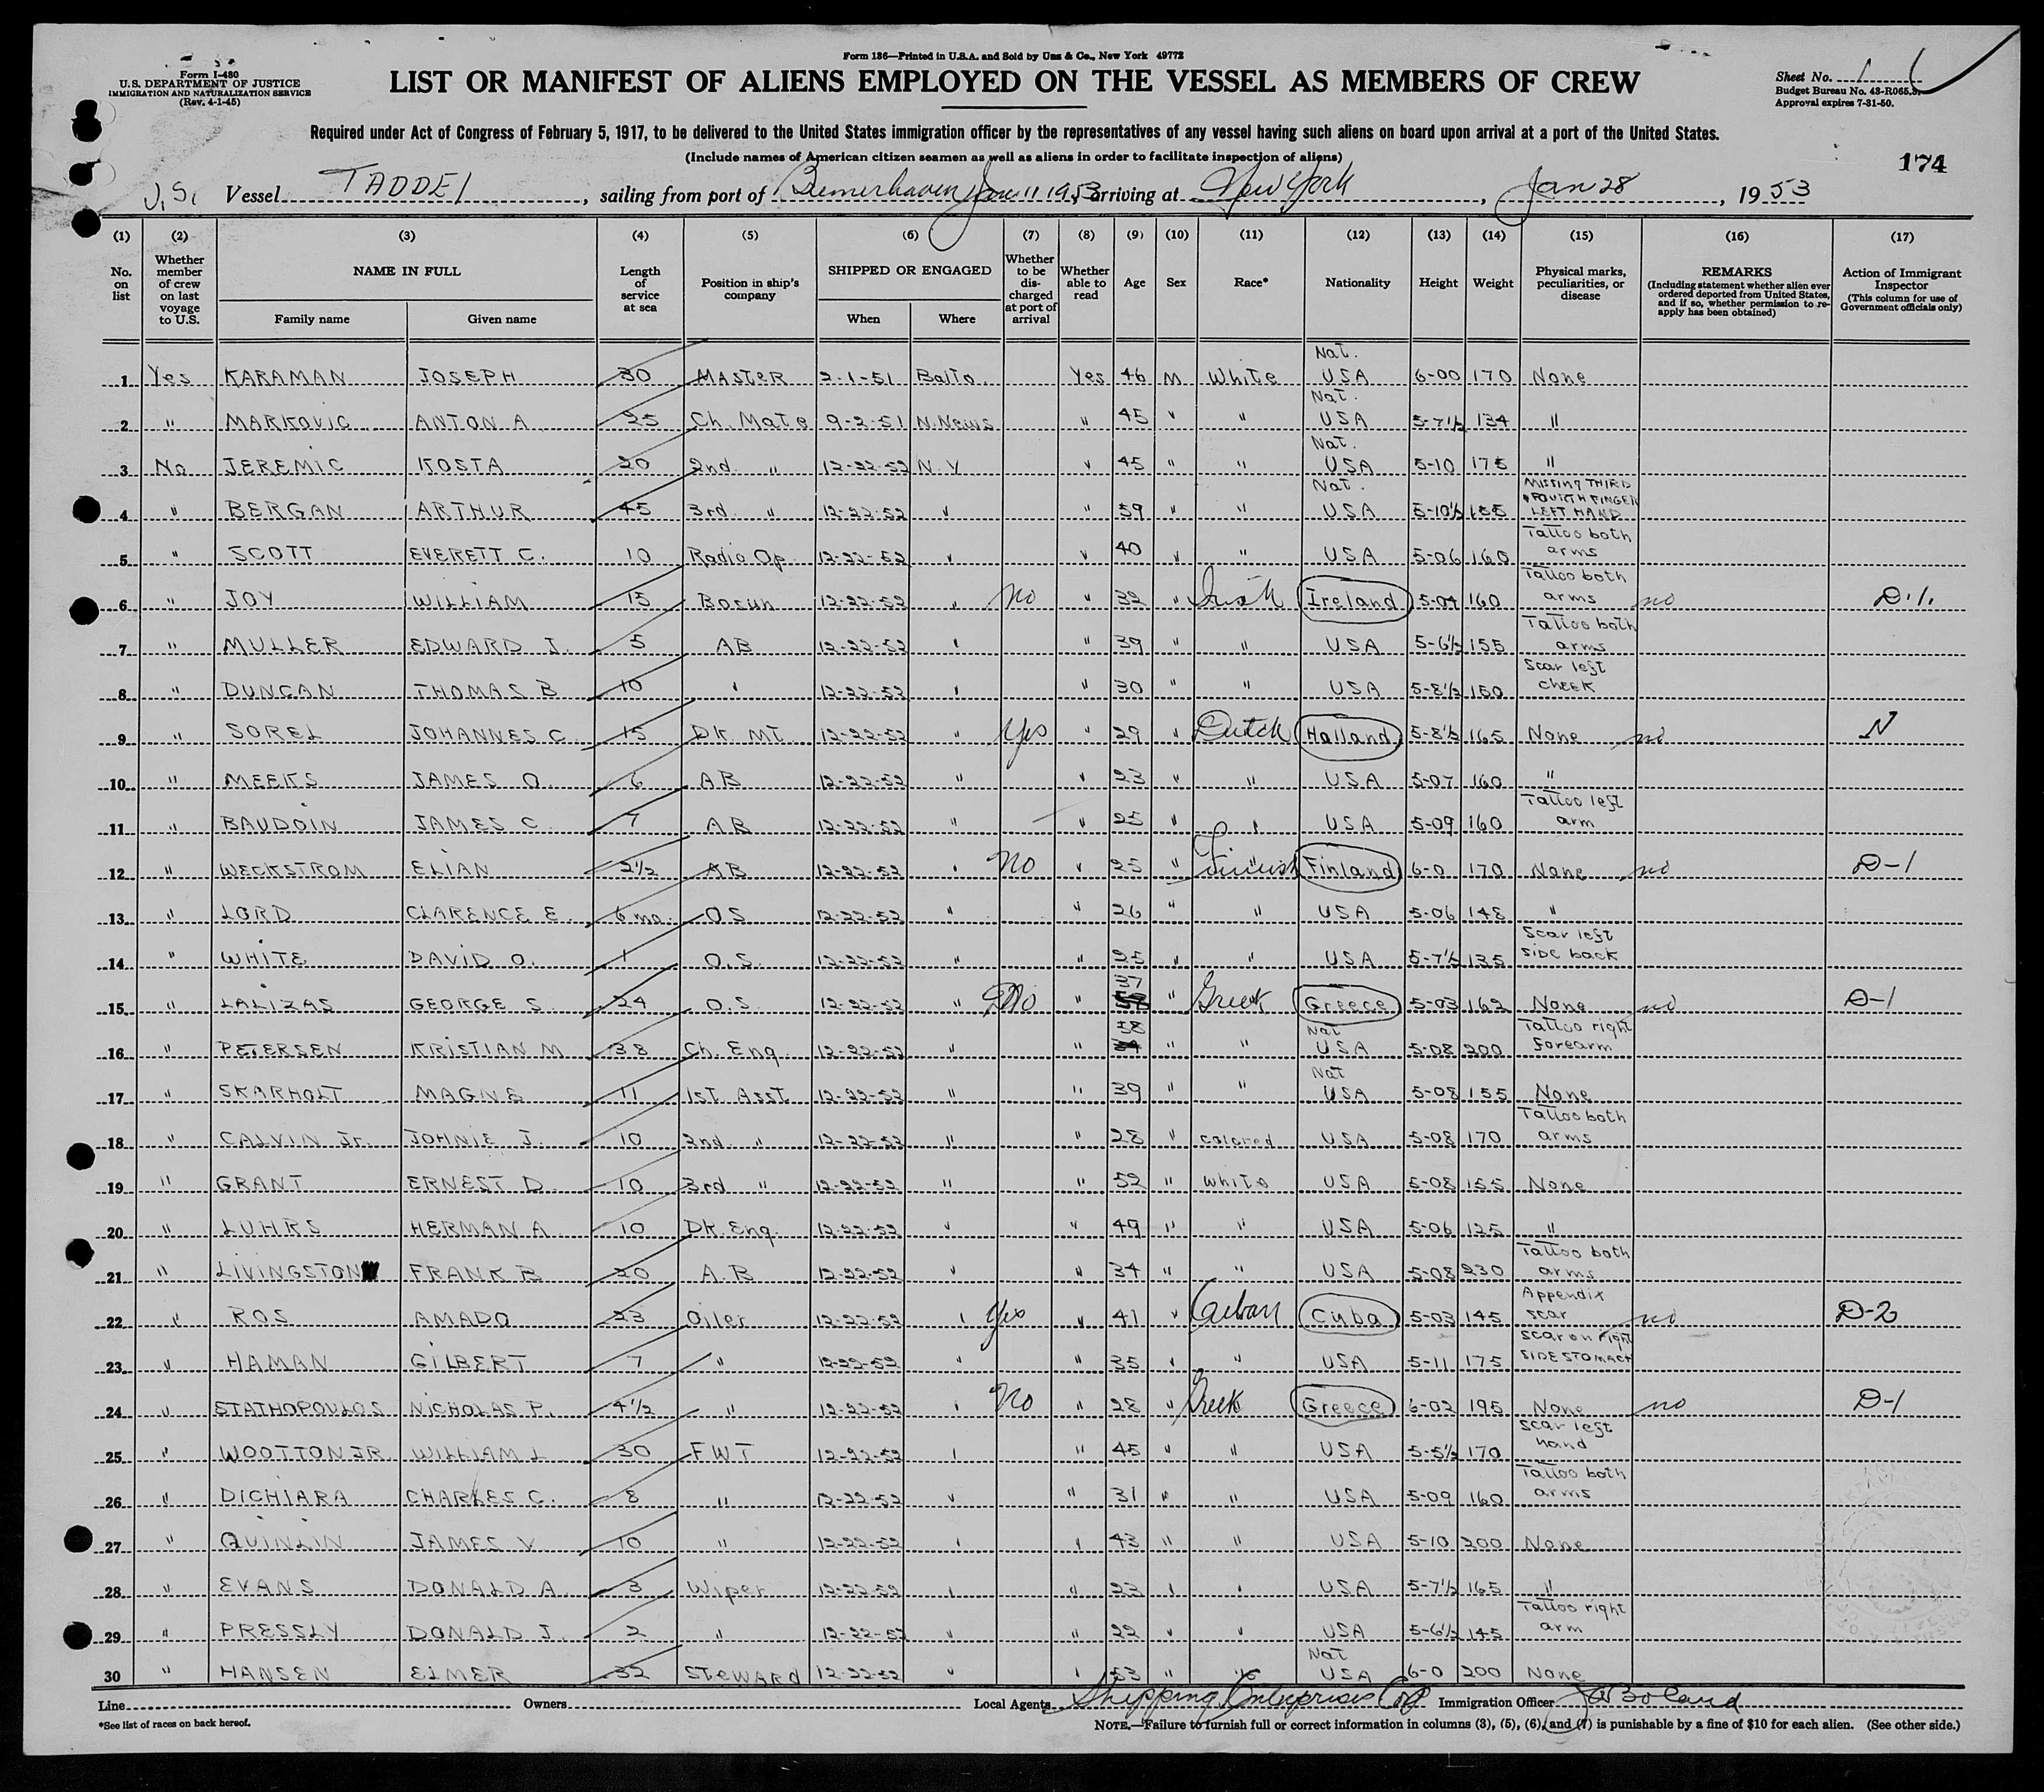 Form I-480
U.S. DEPARTMENT OF JUSTICE
IMMIGRATION AND NATURALIZATION SERVICE
(Rev. 4-1-45)
Form 136—Printed in U.S.A. and Sold by Unz & Co., New York 49772
LIST OR MANIFEST OF ALIENS EMPLOYED ON THE VESSEL AS MEMBERS OF CREW
Sheet No. 1
Budget Bureau No. 43-R065.3.
Approval expires 7-31-50.
Required under Act of Congress of February 5, 1917, to be delivered to the United States immigration officer by the representatives of any vessel having such aliens on board upon arrival at a port of the United States.
(Include names of American citizen seamen as well as aliens in order to facilitate inspection of aliens)
174
Vessel TADDEI, sailing from port of Bremerhaven Jan 11 1953, arriving at New York, Jan 28, 1953
(1) (2) (3) (4) (5) (6) (7) (8) (9) (10) (11) (12) (13) (14) (15) (16) (17)
No. on list
Whether member of crew on last voyage to U.S.
NAME IN FULL
Family name Given name
Length of service at sea
Position in ship's company
SHIPPED OR ENGAGED
When Where
Whether to be discharged at port of arrival
Whether able to read
Age
Sex
Race*
Nationality
Height
Weight
Physical marks, peculiarities, or disease
REMARKS
(Including statement whether alien ever ordered deported from United States, and if so, whether permission to re-apply has been obtained)
Action of Immigrant Inspector
(This column for use of Government officials only)
1 Yes KARAMAN JOSEPH 30 Master 2-1-51 Balto. Yes 46 M White Nat. USA 6-00 170 None
2 " MARKOVIC ANTON A 25 Ch. Mate 9-2-51 N.News " 45 " " Nat. USA 5-7½ 134 "
3 No JEREMIC KOSTA 20 2nd " 12-22-52 N.Y " 45 " " Nat. USA 5-10 175 "
4 " BERGAN ARTHUR 45 3rd " 12-22-52 " " 59 " " Nat. USA 5-10½ MISSING THIRD & FOURTH FINGER LEFT HAND
5 " SCOTT EVERETT C. 10 Radio Op. 12-22-52 " " 40 " " USA 5-06 160 Tattoo both arms
6 " JOY WILLIAM 15 Bosun 12-22-52 " no " 32 " Irish Ireland 160 Tattoo both arms no D-1.
7 " MULLER EDWARD J. 5 AB 12-22-52 " " 39 " " USA 5-6½ 155 Tattoo both arms
8 " DUNCAN THOMAS B 10 " 12-22-52 " " 30 " " USA 5-8½ 150 Scar left cheek
9 " SOREL JOHANNES C. 15 Dk. Mt. 12-22-52 " Yes " 29 " Dutch Holland 5-8½ 165 None no N
10 " MEEKS JAMES O. 6 AB 12-22-52 " " 23 " " USA 5-07 160 "
11 " BAUDOIN JAMES C. 7 AB 12-22-52 " " 25 " " USA 5-09 160 Tattoo left arm
12 " WECKSTROM ELIAN 2½ AB 12-22-52 " no " 25 " Finnish Finland 6-0 170 None no D-1
13 " LORD CLARENCE E. 6 mo. O.S. 12-22-52 " " 26 " " USA 5-06 148 "
14 " WHITE DAVID O. 1 O.S. 12-22-52 " " 25 " " USA 5-7½ 135 Scar left side back
15 " LALIZAS GEORGE S. 24 O.S. 12-22-52 " No " 37 " Greek Greece 5-03 162 None no D-1
16 " PETERSEN KRISTIAN M 38 Ch. Eng. 12-22-52 " " 58 " " Nat USA 5-08 200 Tattoo right forearm
17 " SKARHOLT MAGNE 11 1st Asst 12-22-52 " " 39 " " Nat USA 5-08 155 None
18 " CALVIN Jr. JOHNIE J. 10 2nd " 12-22-52 " " 28 " colored USA 5-08 170 Tattoo both arms
19 " GRANT ERNEST D. 10 3rd " 12-22-52 " " 52 " White USA 5-08 155 None
20 " LUHRS HERMAN A 10 DK. Eng. 12-22-52 " " 49 " " USA 5-06 125 "
21 " LIVINGSTON FRANK B 20 A.B 12-22-52 " " 34 " " USA 5-08 230 Tattoo both arms
22 " ROS AMADO 23 Oiler 12-22-52 " Yes " 41 " Cuban Cuba 5-03 145 Appendix scar no D-2
23 " HAMAN GILBERT 7 " 12-22-52 " " 35 " " USA 5-11 175 scar on right SIDE STOMACH
24 " STATHOPOULOS NICHOLAS P. 4½ " 12-22-52 " No " 28 " Greek Greece 6-02 195 None no D-1
25 " WOOTTON JR. WILLIAM L 30 FWT 12-22-52 " " 45 " " USA 5-5½ 170 Scar left hand
26 " DICHIARA CHARLES C. 8 " 12-22-52 " " 31 " " USA 5-09 160 Tattoo both arms
27 " QUINLIN JAMES V 10 " 12-22-52 " " 43 " " USA 5-10 200 None
28 " EVANS DONALD A. 3 Wiper 12-22-52 " " 23 " " USA 5-7½ 165 "
29 " PRESSLY DONALD J. 2 " 12-22-52 " " 22 " " USA 5-6½ 145 Tattoo right arm
30 " HANSEN ELMER 32 Steward 12-22-52 " " 53 " " Nat USA 6-0 200 None
Line Owners Local Agents Shipping Enterprises Corp Immigration Officer J Boland
*See list of races on back hereof.
NOTE.—Failure to furnish full or correct information in columns (3), (5), (6), and (7) is punishable by a fine of $10 for each alien. (See other side.)